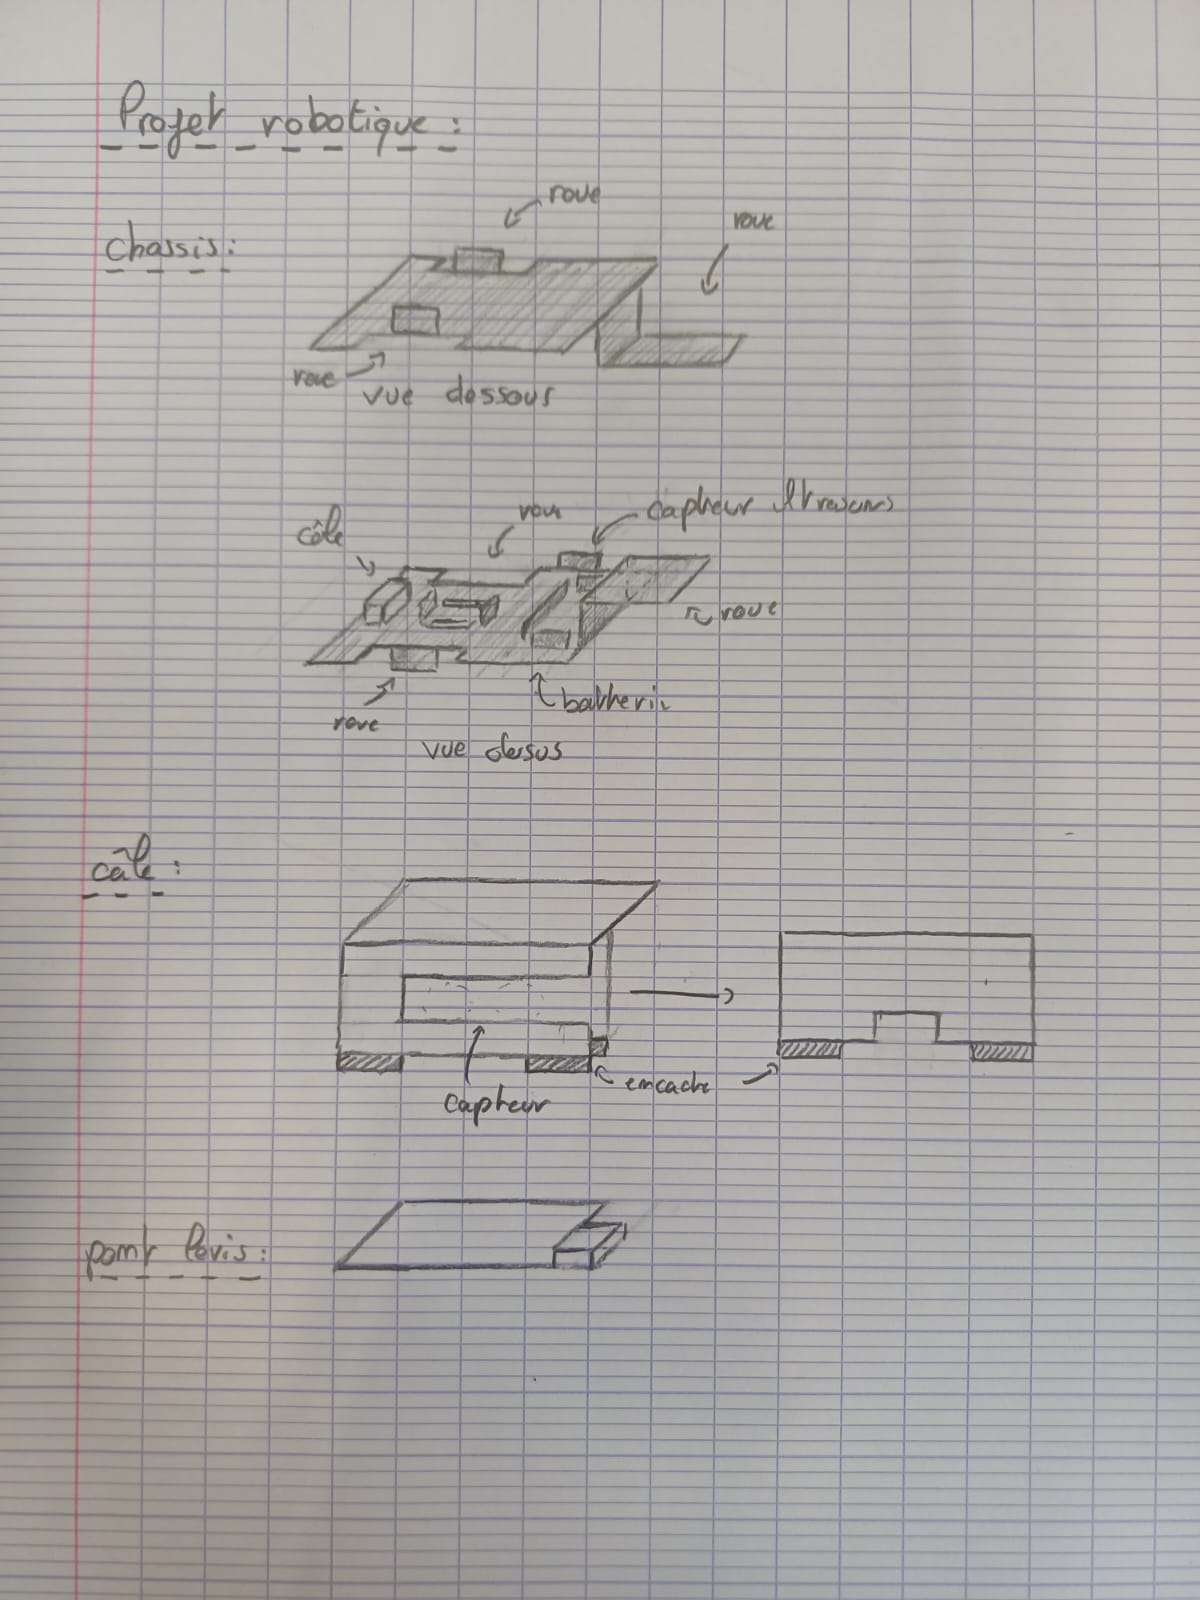 Projet robotique :
roue
roue
chassis :
roue
vue dessous
capteur Ultrasons
roue
câle
roue
batterie
roue
vue dessus
câle :
encoche
capteur
pont levis :